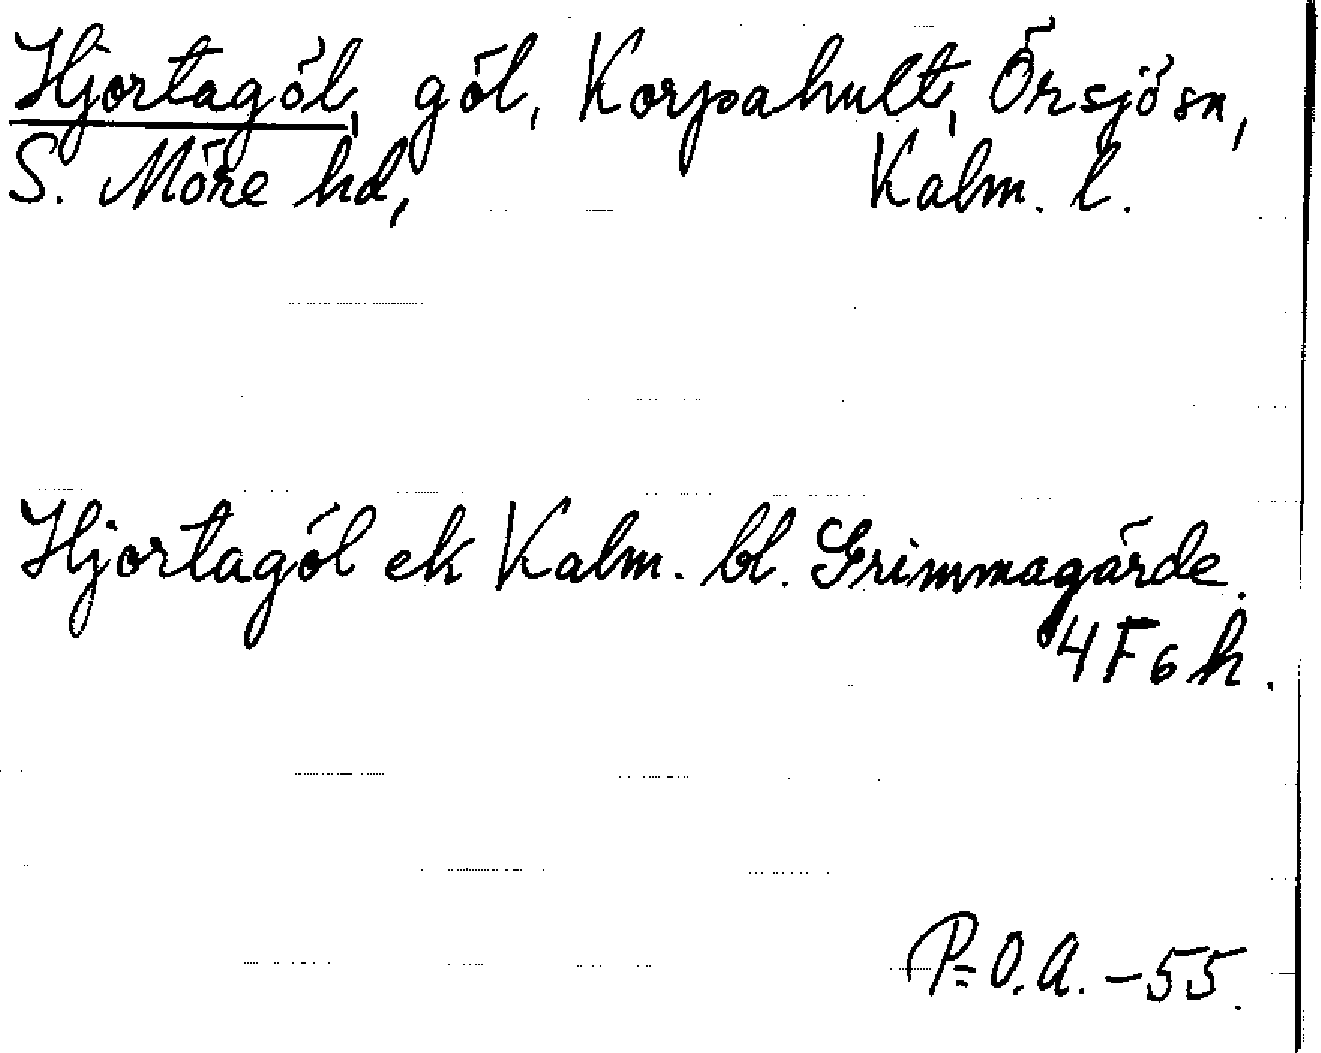 Hjortagöl, göl, Korpahult, Örsjö sn,
S. Möre hd, Kalm. l.
Hjortagöl ek Kalm. bl. Grimmagärde.
4 F 6 h.
P=O.A. -55.